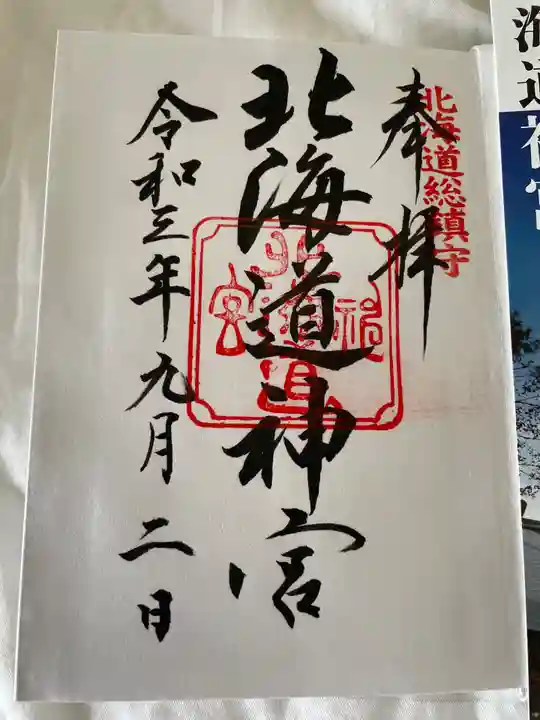 海道神宮
北海道総鎮守
奉拝
北海道神宮
北海道神宮
令和三年九月二日